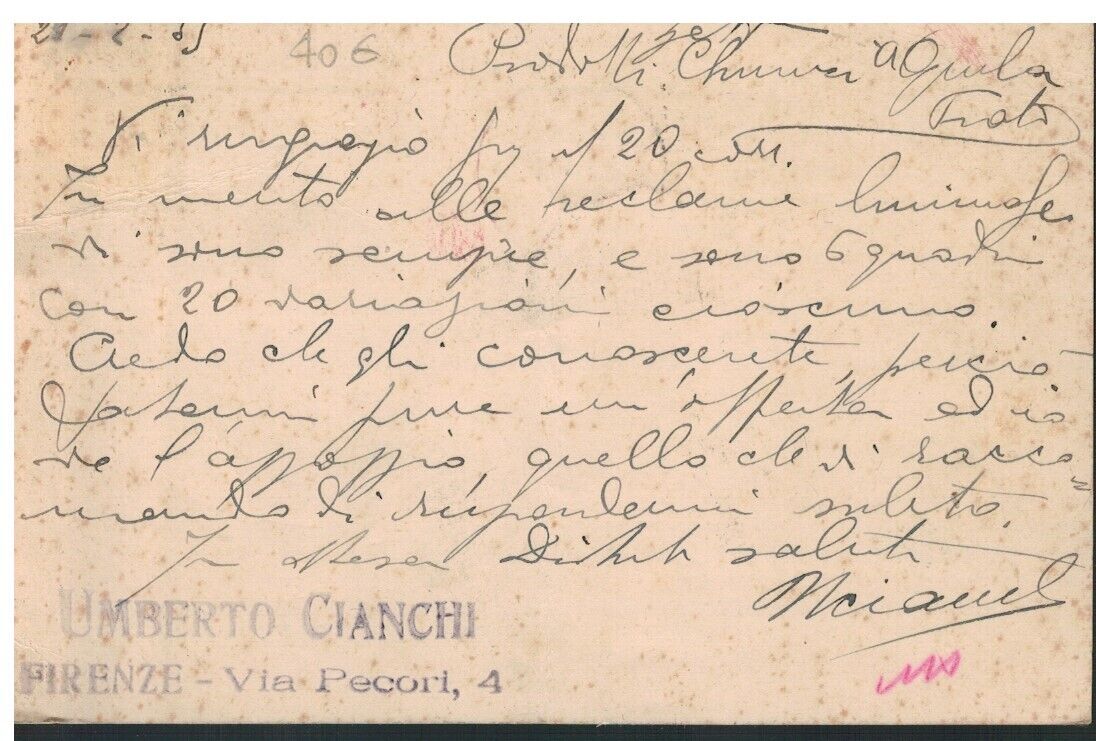 21-2-35
406
Prodotti Aquila
Prato
Vi ringrazio 20 corr.
In merito alle reclame luminose
vi sono sempre, e sono 6 quadri
con 20 variazioni ciascuno.
Credo che gli conoscerete, perciò
fatemi pure un'offerta ed io
ve l'appoggio, quello che vi racco=
mando di rispondermi subito.
In attesa Distinti saluti
UMBERTO CIANCHI
FIRENZE - Via Pecori, 4